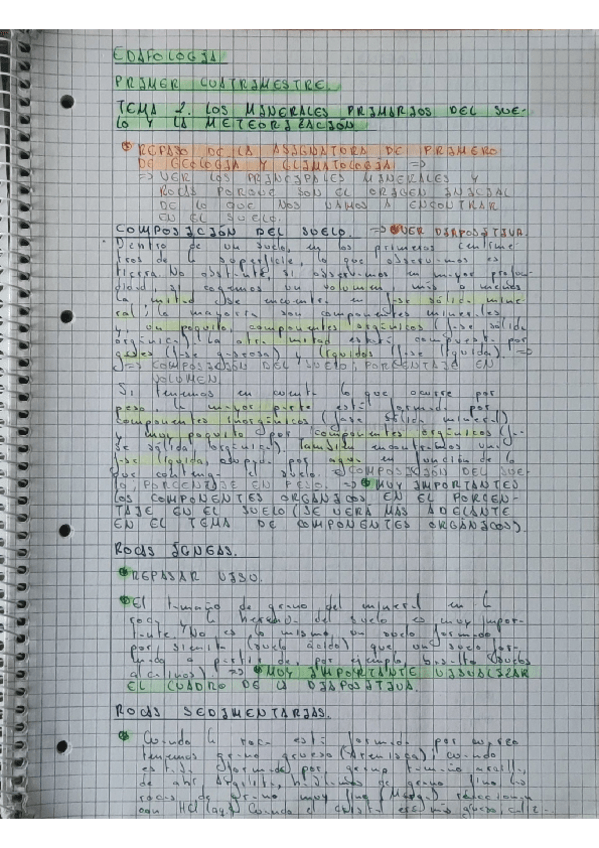 EDAFOLOGIA
PRIMER CUATRIMESTRE.
TEMA 2. LOS MINERALES PRIMARIOS DEL SUE-
LO Y LA METEORIZACIÓN
REPASO DE LA ASIGNATURA DE PRIMERO
DE GEOLOGIA Y CLIMATOLOGIA =>
=> VER LOS PRINCIPALES MINERALES Y
ROCAS PORQUE SON EL ORIGEN INICIAL
DE LO QUE NOS VAMOS A ENCONTRAR
EN EL SUELO.
COMPOSICIÓN DEL SUELO. => VER DIAPOSITIVA.
Dentro de un suelo, en los primeros centíme-
tros de la superficie, lo que observamos es
tierra. No obstante, si observamos en mayor profun-
didad, si cogemos un volumen, más o menos
la mitad se encuentra en fase sólida mine-
ral; la mayoría son componentes minerales
y, un poquito, componentes orgánicos (fase sólida
orgánica). La otra mitad está compuesta por
gases (fase gaseosa) y líquidos (fase líquida). =>
=> COMPOSICIÓN DEL SUELO; PORCENTAJE EN
VOLUMEN.
Si tenemos en cuenta lo que ocurre por
peso, la mayor parte está formada por
componentes inorgánicos (fase sólida mineral)
y muy poquito por componentes orgánicos (fa-
se sólida orgánica). También encontramos una
fase líquida, por agua en función de la
que contenga el suelo. => COMPOSICIÓN DEL SUE-
LO; PORCENTAJE EN PESO. => MUY IMPORTANTES
LOS COMPONENTES ORGANICOS EN EL PORCEN-
TAJE EN EL SUELO (SE VERÁ MAS ADELANTE
EN EL TEMA DE COMPONENTES ORGANICOS).
ROCAS ÍGNEAS.
REPASAR VISU.
El tamaño de grano del mineral en la
roca y la herencia del suelo es muy impor-
tante. No es lo mismo, un suelo formado
por sienita (suelo ácido) que un suelo for-
mado a partir de, por ejemplo, basalto (suelos
alcalinos). => MUY IMPORTANTE VISUALIZAR
EL CUADRO DE LA DIAPOSITIVA.
ROCAS SEDIMENTARIAS.
Cuando la roca está formada por
tenemos grano grueso (Arenisca); cuando
está formada por grano tamaño arcilla,
de grano fino, las
rocas de grano muy fino reaccionan
con HCl (aq). Cuando el cristal es más grueso,